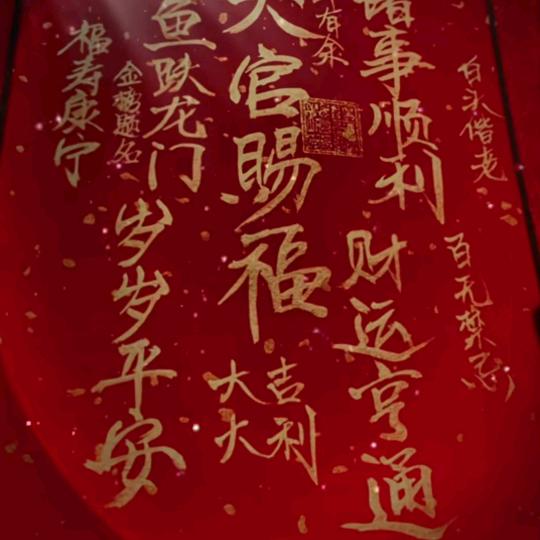 白头偕老
百无禁忌
诸事顺利
财运亨通
有余
天官赐福
大吉大利
鱼跃龙门
金榜题名
岁岁平安
福寿康宁